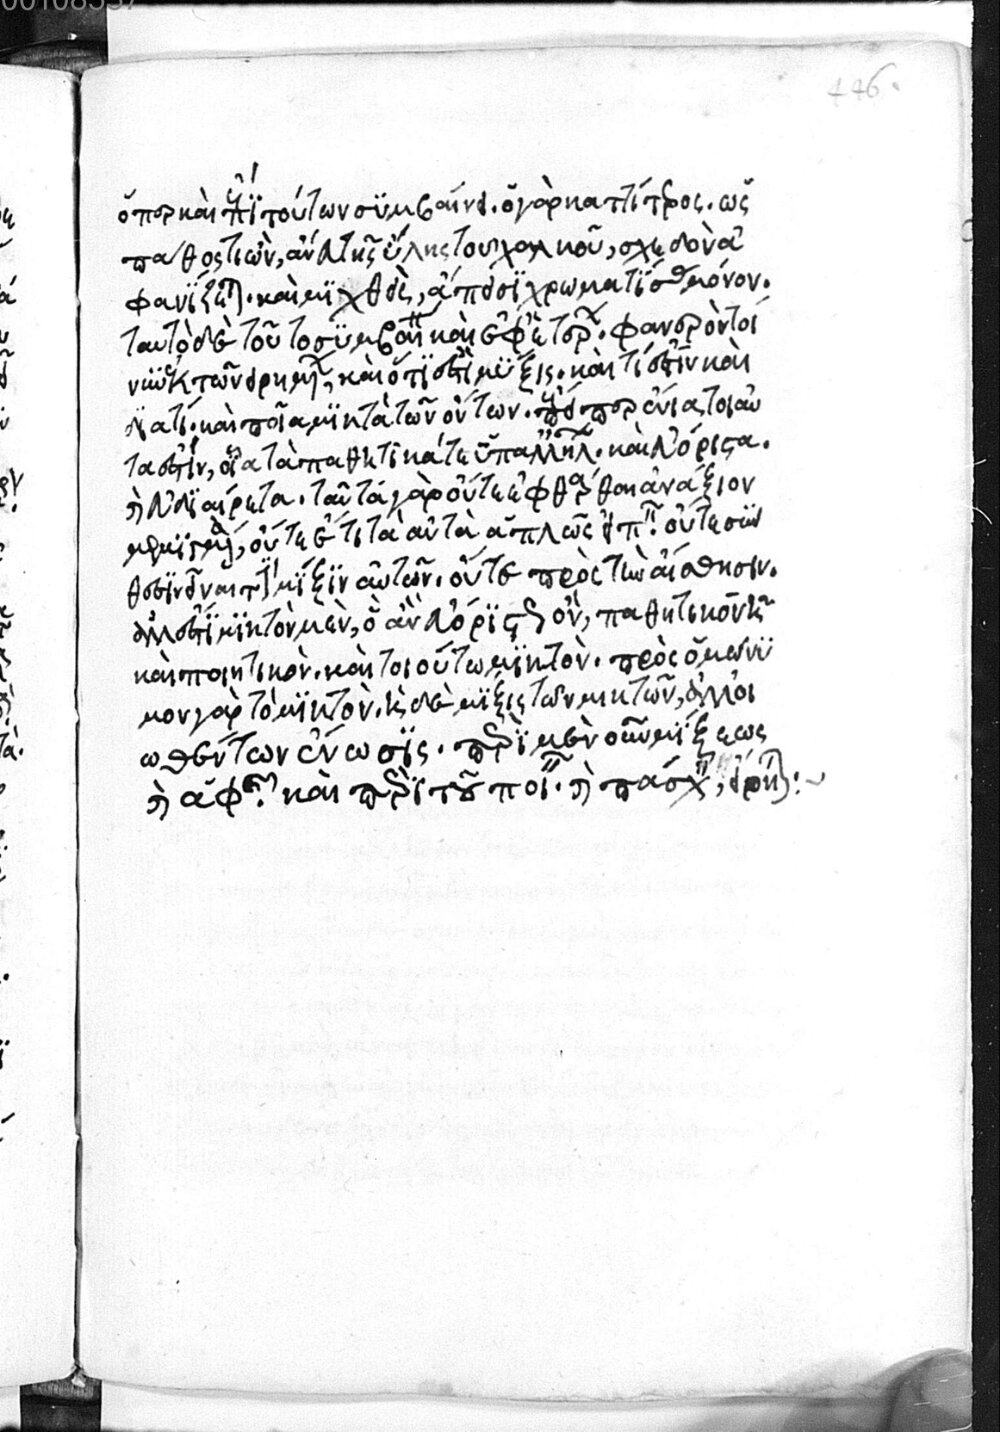 446.
ὅπερ καὶ ἐπὶ τούτων συμβαίνει. ὁ γὰρ καττίτερος. ὡς
πάθος τι ὢν, ἄνευ τῆς ὕλης τοῦ χαλκοῦ, σχεδὸν ἀ
φανίζεται. καὶ μιχθεὶς, ἄπεισι χρωματίσας μόνον.
ταυτὸ δὲ τοῦτο συμβαίνει καὶ ἐφ' ἑτέρων. φανερὸν τοί
νυν ἐκ τῶν εἰρημένων, καὶ ὅτι ἐστὶ μίξις. καὶ τί ἐστὶν καὶ
διατί. καὶ ποῖα μικτὰ τῶν ὄντων. ἐπείπερ ἐνια τοιαῦ
τα ἐστὶν, οἷα τὰ παθητικά τε ὑπ' ἀλλήλων. καὶ εὐόριστα.
ἢ εὐδιαίρετα. ταῦτα γὰρ οὔτε ἐφθάρθαι ἀνάξιον
μεμιγμένα, οὔτε ἔτι τὰ αὐτὰ ἁπλῶς εἶναι. οὔτε σύν
θεσιν εἶναι τὴν μίξιν αὐτῶν. οὔτε πρὸς τὴν αἴσθησιν.
ἀλλ' ἐστὶ μικτὸν μὲν, ὃ ἂν εὐόριστον ὂν, παθητικὸν ᾖ
καὶ ποιητικὸν. καὶ τοιούτω μικτὸν. πρὸς ὁμώνυ
μον γὰρ τὸ μικτὸν. ἡ δὲ μίξις τῶν μικτῶν, ἀλλοι
ωθέντων ἕνωσις. περὶ μὲν οὖν μίξεως
ἢ ἁφῆς. καὶ περὶ τοῦ ποιεῖν. ἢ πάσχειν, εἴρηται: